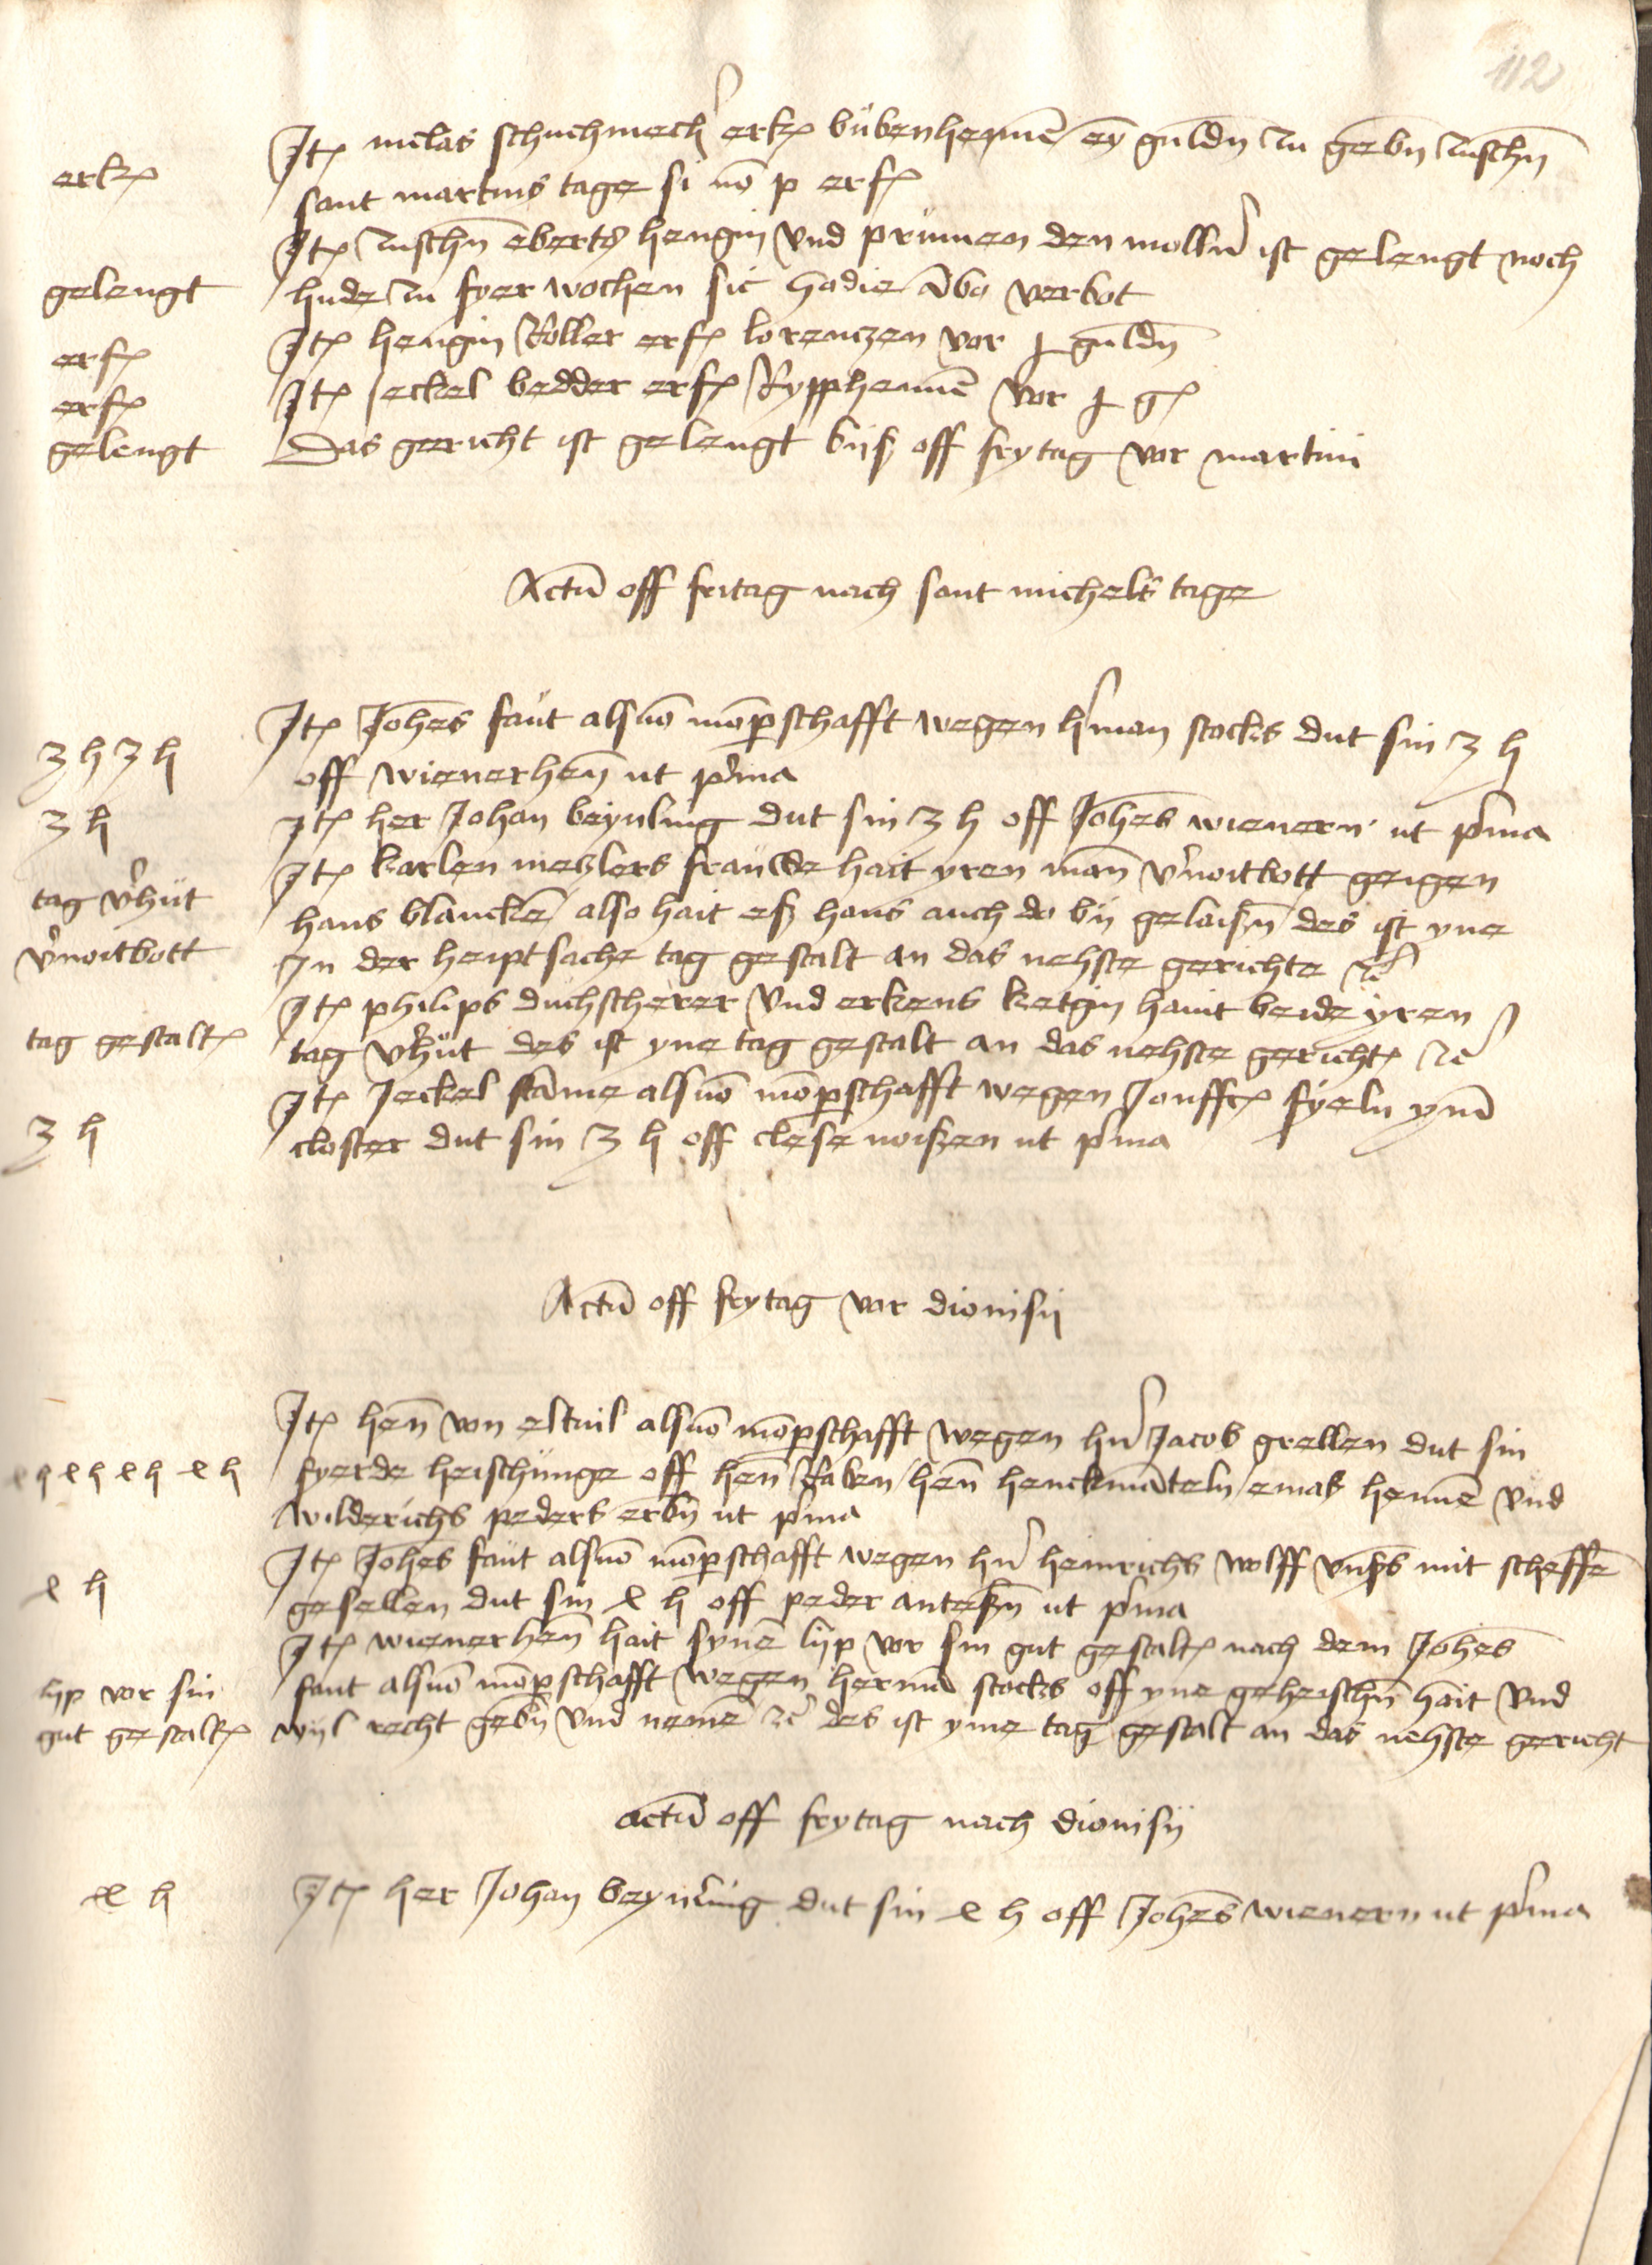 112
erk(
Jt( niclas schuchmech' erk( bubenhenne͞ ey͞ guld͞n zu geb͞n zusch͞n
sant martins tage si no͞ p erf(
gelengt
Jt( zusch͞n eberts hengin vnd prumen den moll͞n ist gelengt noch
hude zu fyer wochen sic hodie a͞bo verbot
erf(
Jt( hengin Koller erf( lorenczen vor j guld͞n
erf(
Jt( jeckel bedder erf( Rypphenne͞ vor j g(
gelengt
Das gericht ist gelengt bijß off frytag vor martini
Actu͞ off fritag nach sant michels tage
3 h 3 h
Jt( Joh͞es faut als vo͞ mo͞perschafft wegen h'man stocks dut sin 3 h
off wienerhen͞ ut p'ma
3 h
Jt( her Johan beynling dut sin 3 h off Joh͞es wienern ut p'ma
tag v'hut
Jt( karlen meczlers frauwe hait yren man͞ v'noitbott geigen
hans blancke͞ / also hait eß hans auch do by gelaiß͞n / des ist yne
v'noitbott
Jn der heiptsache tag gestalt an das nehste gerichte ꝛc'
tag gestalt(
Jt( philips duchscherer vnd erkens ketgin haint beide yren
tag v'hut des ist yne tag gestalt an das nehste gericht( ꝛc'
3 h
Jt( Jeckel sta͞me als vo͞ mo͞perschafft wegen Jonffr( fyeln yme͞
closter dut sin 3 h off clese noißen ut p'ma
Actu͞ off frytag vor dionisij
4 h 4 h 4 h 4 h
Jt( hen͞ von eltuil als vo͞ mo͞perschafft wegen h'n Jacob grellen dut sin
fyerde heischunge off hen͞ faben / hen͞ henckma͞teln / emas henne͞ vnd
wilderichs peders erb͞n ut p'ma
4 h
Jt( Joh͞es faut als vo͞ mo͞perschafft wegen h'n heinrichs wolff vnß͞s mit scheffe͞
gesellen dut sin 4 h off peder anteß͞n ut p'ma
lyp vor sin
gut gestalt(
Jt( wienerhen͞ hait syne͞ lijp vor sin gut gestalt( nach dem Joh͞es
faut als vo͞ mo͞perschafft wegen herma͞ stocks off yne geheisch͞n hait vnd
wijl recht geb͞n vnd neme͞ ꝛc' des ist yme tag gestalt an das nehste gericht
actu͞ off frytag nach dionisij
4 h
Jt( her Johan beynling dut sin 4 h off Joh͞es wienern ut p'ma